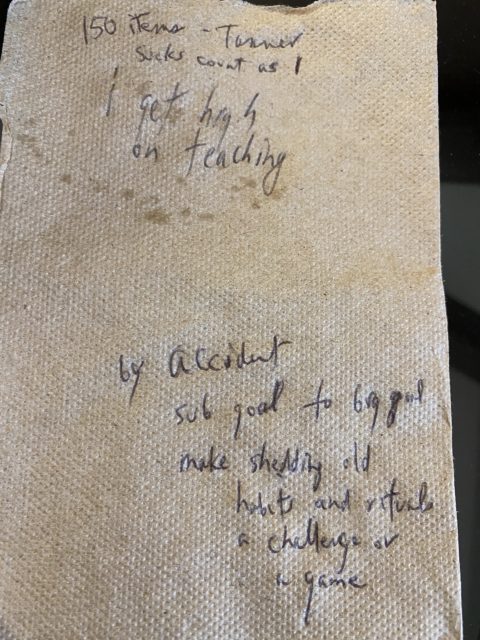 150 items - Tanner
socks count as 1
i get high
on teaching
by accident
sub goal to big goal
make shedding old
habits and rituals
a challenge or
a game